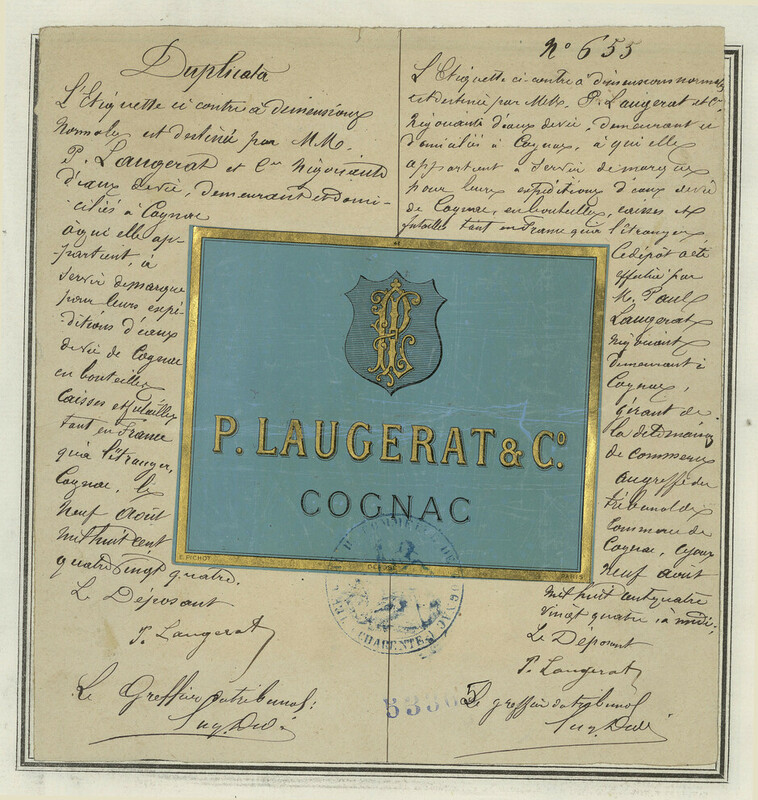 Duplicata
L'Etiquette ci contre à dimensions
normales est destinée par MM.
P. Laugerat et Cie Négociants
d'eaux de vie, demeurant et domi-
-ciliés à Cognac
à qui elle ap-
-partient, à
servir de marque
pour leurs expé-
-ditions d'eaux
de vie de Cognac
en bouteilles
caisses et futailles
tant en France
qu'à l'étranger,
Cognac, le
neuf août
mil huit cent
quatre vingt quatre.
Le Déposant
P. Laugerat
Le Greffier du tribunal:
No 655
L'Etiquette ci contre à dimensions normales
est destinée par MM. P. Laugerat et Cie
Négociants d'eaux de vie, demeurant et
domiciliés à Cognac, à qui elle
appartient à servir de marque
pour leurs expéditions d'eaux de vie
de Cognac, en bouteilles, caisses et
futailles tant en France qu'à l'étranger
Ce dépôt a été
effectué par
M. Paul
Laugerat
négociant
demeurant à
Cognac,
gérant de
la dite maison
de commerce
au greffe du
tribunal de
Commerce de
Cognac, ce jour
neuf août
mil huit cent quatre
vingt quatre à midi;
Le Déposant
P. Laugerat
Le greffier du tribunal
PL
P. LAUGERAT & Co.
COGNAC
E. PICHOT
DÉPOSÉ
PARIS
53365